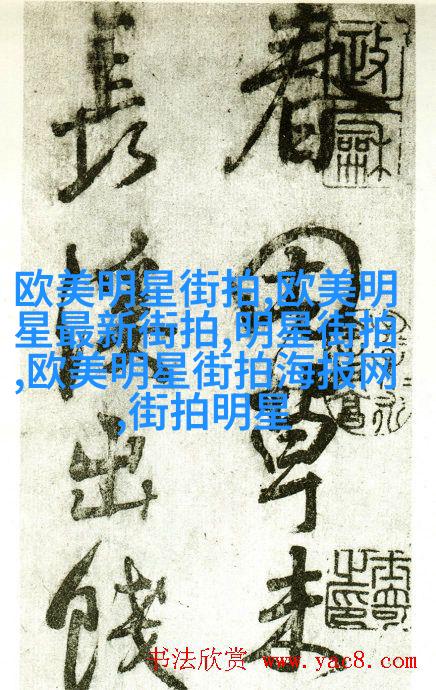 政龢
草未
長
出餞
欧美明星街拍,欧美明
星最新街拍,明星街拍
,欧美明星街拍海报网
,街拍明星
书法欣赏 www.yac8.com